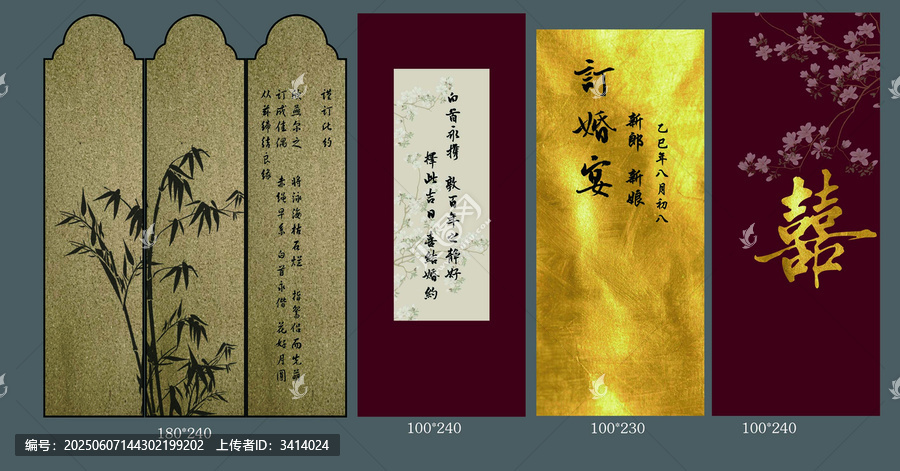 从兹缔结良缘
订成佳偶 赤绳早系 白首永偕 花好月圆
欣燕尔之 将泳海枯石烂 指鸳侣而先盟
谨订此约
白首永携 敦百年之静好
擇此吉日 喜結婚約
訂婚宴
新郎 新娘
乙巳年八月初八
囍
180*240
100*240
100*230
100*240
编号：20250607144302199202 上传者ID：3414024